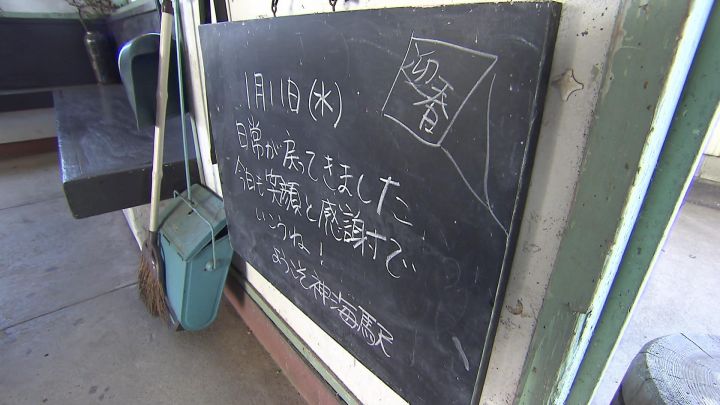 迎春
1月11日(水)
日常が戻ってきました
今日も笑顔と感謝で
いこうね!
ようこそ神海駅